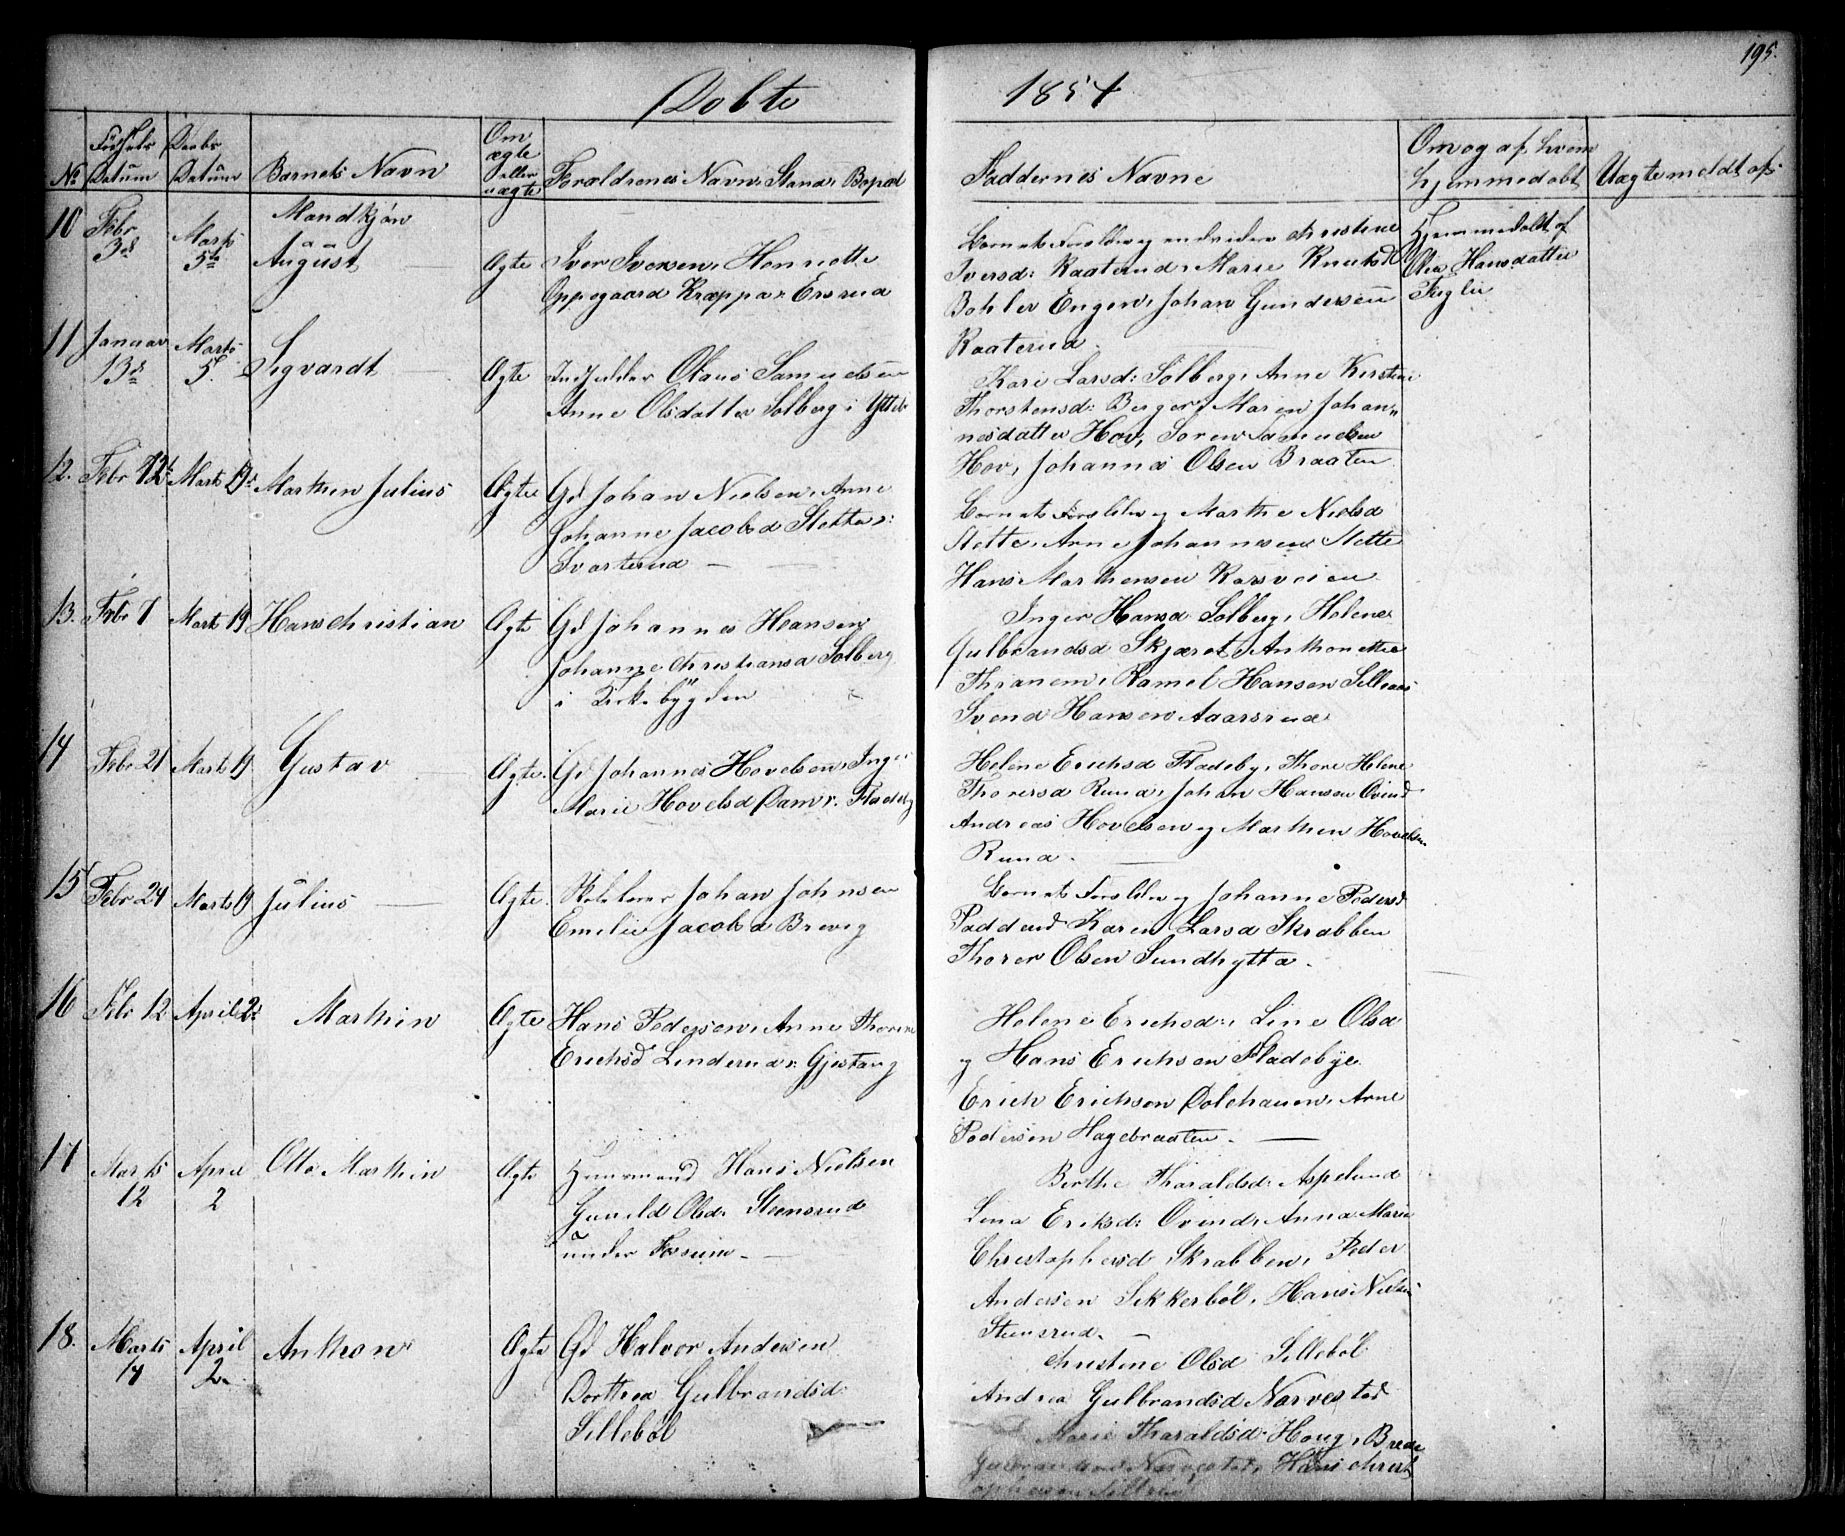 195.
Døbte 1854
No Fødsels Datum Daabs Datum Barnets Navn Om ægte eller uægte Forældrenes Navn, Stand, Bopæl
Faddernes Navne Om og af hvem hjemmedøbt Uægte meldt af
Mandkjøn
10 Febr 3d Marts 5te August Ægte Iver Iversen, Hennette
Oppegaard Kræppa v. Ersrud
Barnets Forældre og endvidere Christine
Iversd: Raaterud, Marie Knutsd
Bøhler Engen, Johan Gundersen
Raaterud.
Hjemmedøbt af
Olea Hansdatter
Fuglu
11 Januar 13d Marts 5 Sigvardt Ægte Indsidder Olaus Samuelsen
Anne Olsdatter Solberg i Ytteb
Kari Larsd: Solberg, Anne Kirstine
Thorstensd: Berger, Maren Johan„
nesdatter Hov, Søren Samuelsen
Hov, Johannes Olsen Braaten
12. Febr 12te Marts 19de Marthin Julius Ægte Gd Johan Nielsen, Anne
Johanne Jacobsd Slette v:
Svarterud
Barnets Forældre og Marthe Nielsd
Slette, Arne Johannesen Slette
Hans Marthensen Karsveien
13. Febr 7 Marts 19 Hans Christian Ægte Gd Johannes Hansen
Johanne Christiansd Solberg
i Kirkebygden
Inger Hansd Solberg, Helene
Gulbrandsd Skjæret, Anthonette
Thranem, Hansen
Svend Hansen Aaarsrud
14 Febr 21 Marts 19 Gustav Ægte. Gd Johannes Hovelsen, Inge
Marie Hovelsd Dam v. Fladeby
Helene Erichsd Fladeby, Thore Helene
Thorersd Rund, Johan Hansen Ovind
Andreas Hovelsen og Marthin Hovelsen
Rund.
15 Febr 24 Marts 19 Julius Ægte. Skolelærer Johan Johnsen
Emelie Jacobsd Brevig
Barnets Forældre og Johanne Pedersd
Paddeud Karen Larsd Skrabben
Thorer Olsen Sundhytta.
16 Febr 12 April 2d Marthin Ægte Hans Pedersen, Anne Thorine
Erichsd Linderud v. Gjestang
Helene Erichsd:, Line Olsd
og Hans Erichsen Fladebye
Erich Erichsen Dolehauen, Arne
Pedersen Hagebraaten.
17 Marts 12 April 2 Otto Marthin Ægte Huusmand Hans Nielsen
Gunild Olsd: Steensrud
under Fossum
Berthe Tharaldsd: Aspelund
Lina Eriksd: Ovind, Anna Marie
Christophersd Skrabben, Peder
Andersen Sikkerbøl, Hans Nielsen
Steensrud.
18. Marts 14 April 2 Anthon Ægte Gd Halvor Andersen
Dorthea Gulbrandsd:
Sillebøl
Christine Olsd Sillebøl
Andrea Gulbrandsd Narvestad
Marie Tharaldsd: Houg, Brede
Narvestad, Hans Christ
ophersen